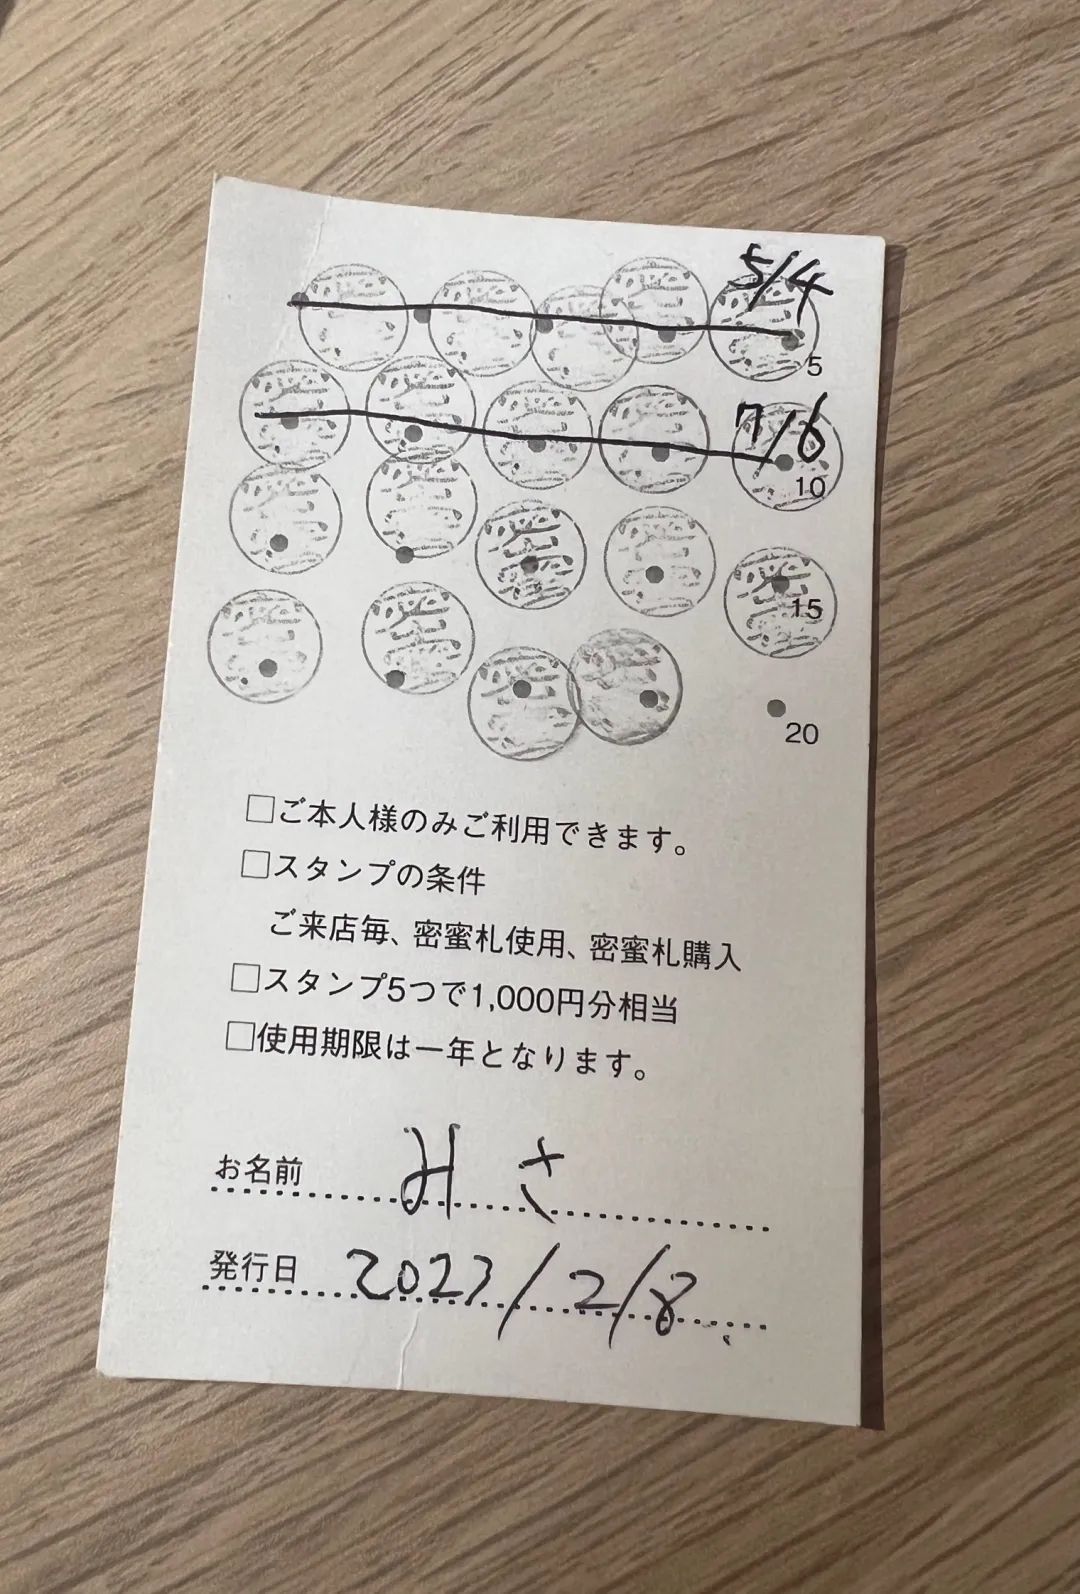 5/4
5
7/6
10
15
20
□ご本人様のみご利用できます。
□スタンプの条件
ご来店毎、密蜜札使用、密蜜札購入
□スタンプ5つで1,000円分相当
□使用期限は一年となります。
お名前 みさ
発行日 2023/2/8